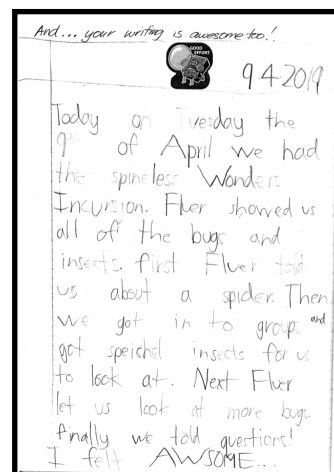 And... your writing is awesome too!
GOOD EFFORT
9 4 2019
Today on Tuesday the
9th of April we had
the spineless Wonders
Incursion. Fluer showed us
all of the bugs and
insects. first Fluer told
us about a spider. Then
we got in to groups and
got speichel insects for us
to look at. Next Fluer
let us look at more bugs
finally we told questions!
I felt AWSOME...